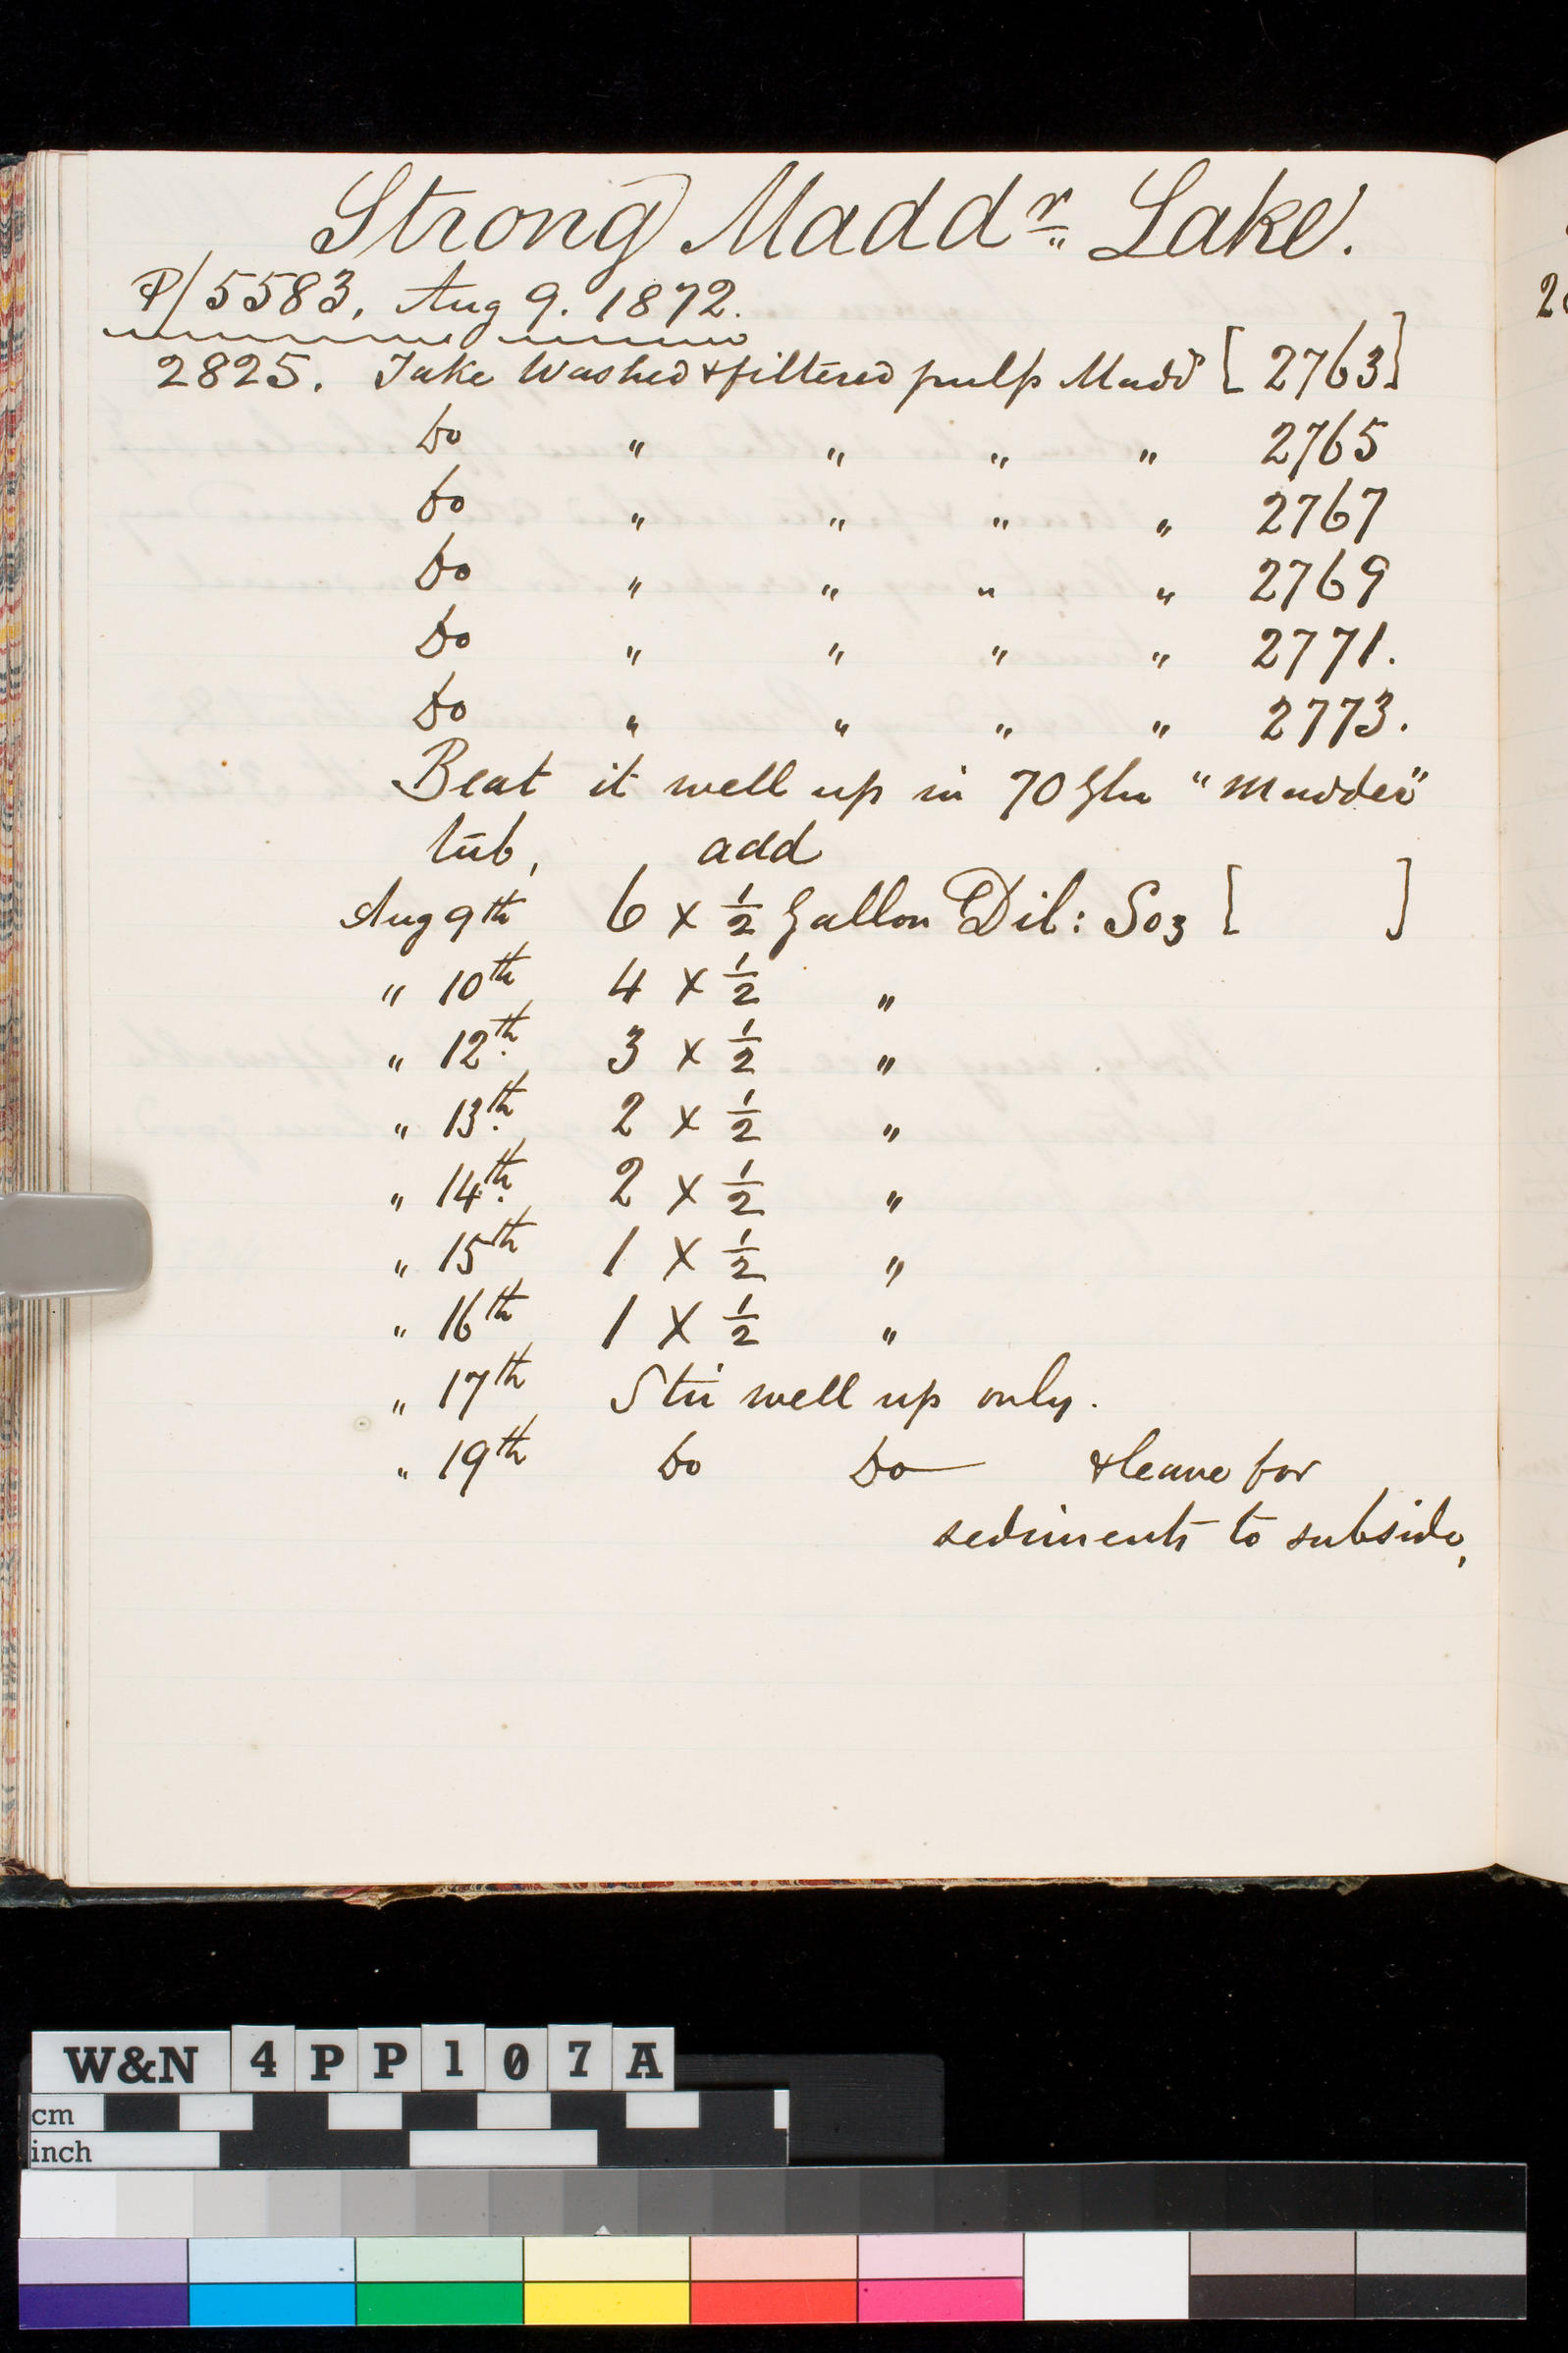 Strong Madd^r. Lake.
P/5583, Aug 9. 1872.
2825. Take Washed & filtered pulp Madd [ 2763]
Do " " " " 2765
Do " " " " 2767
Do " " " " 2769
Do " " " " 2771.
Do " " " " 2773.
Beat it well up in 70 Gln "Madder"
tub, add
Aug 9th 6 x 1/2 Gallon Dil: So3 [ ]
" 10th 4 x 1/2 "
" 12th. 3 x 1/2 "
" 13th. 2 x 1/2 "
" 14th. 2 x 1/2 "
" 15th 1 x 1/2 "
" 16th 1 x 1/2 "
" 17th Stir well up only.
" 19th Do Do & leave for
sediments to subside,
W&N 4PP107A
cm
inch